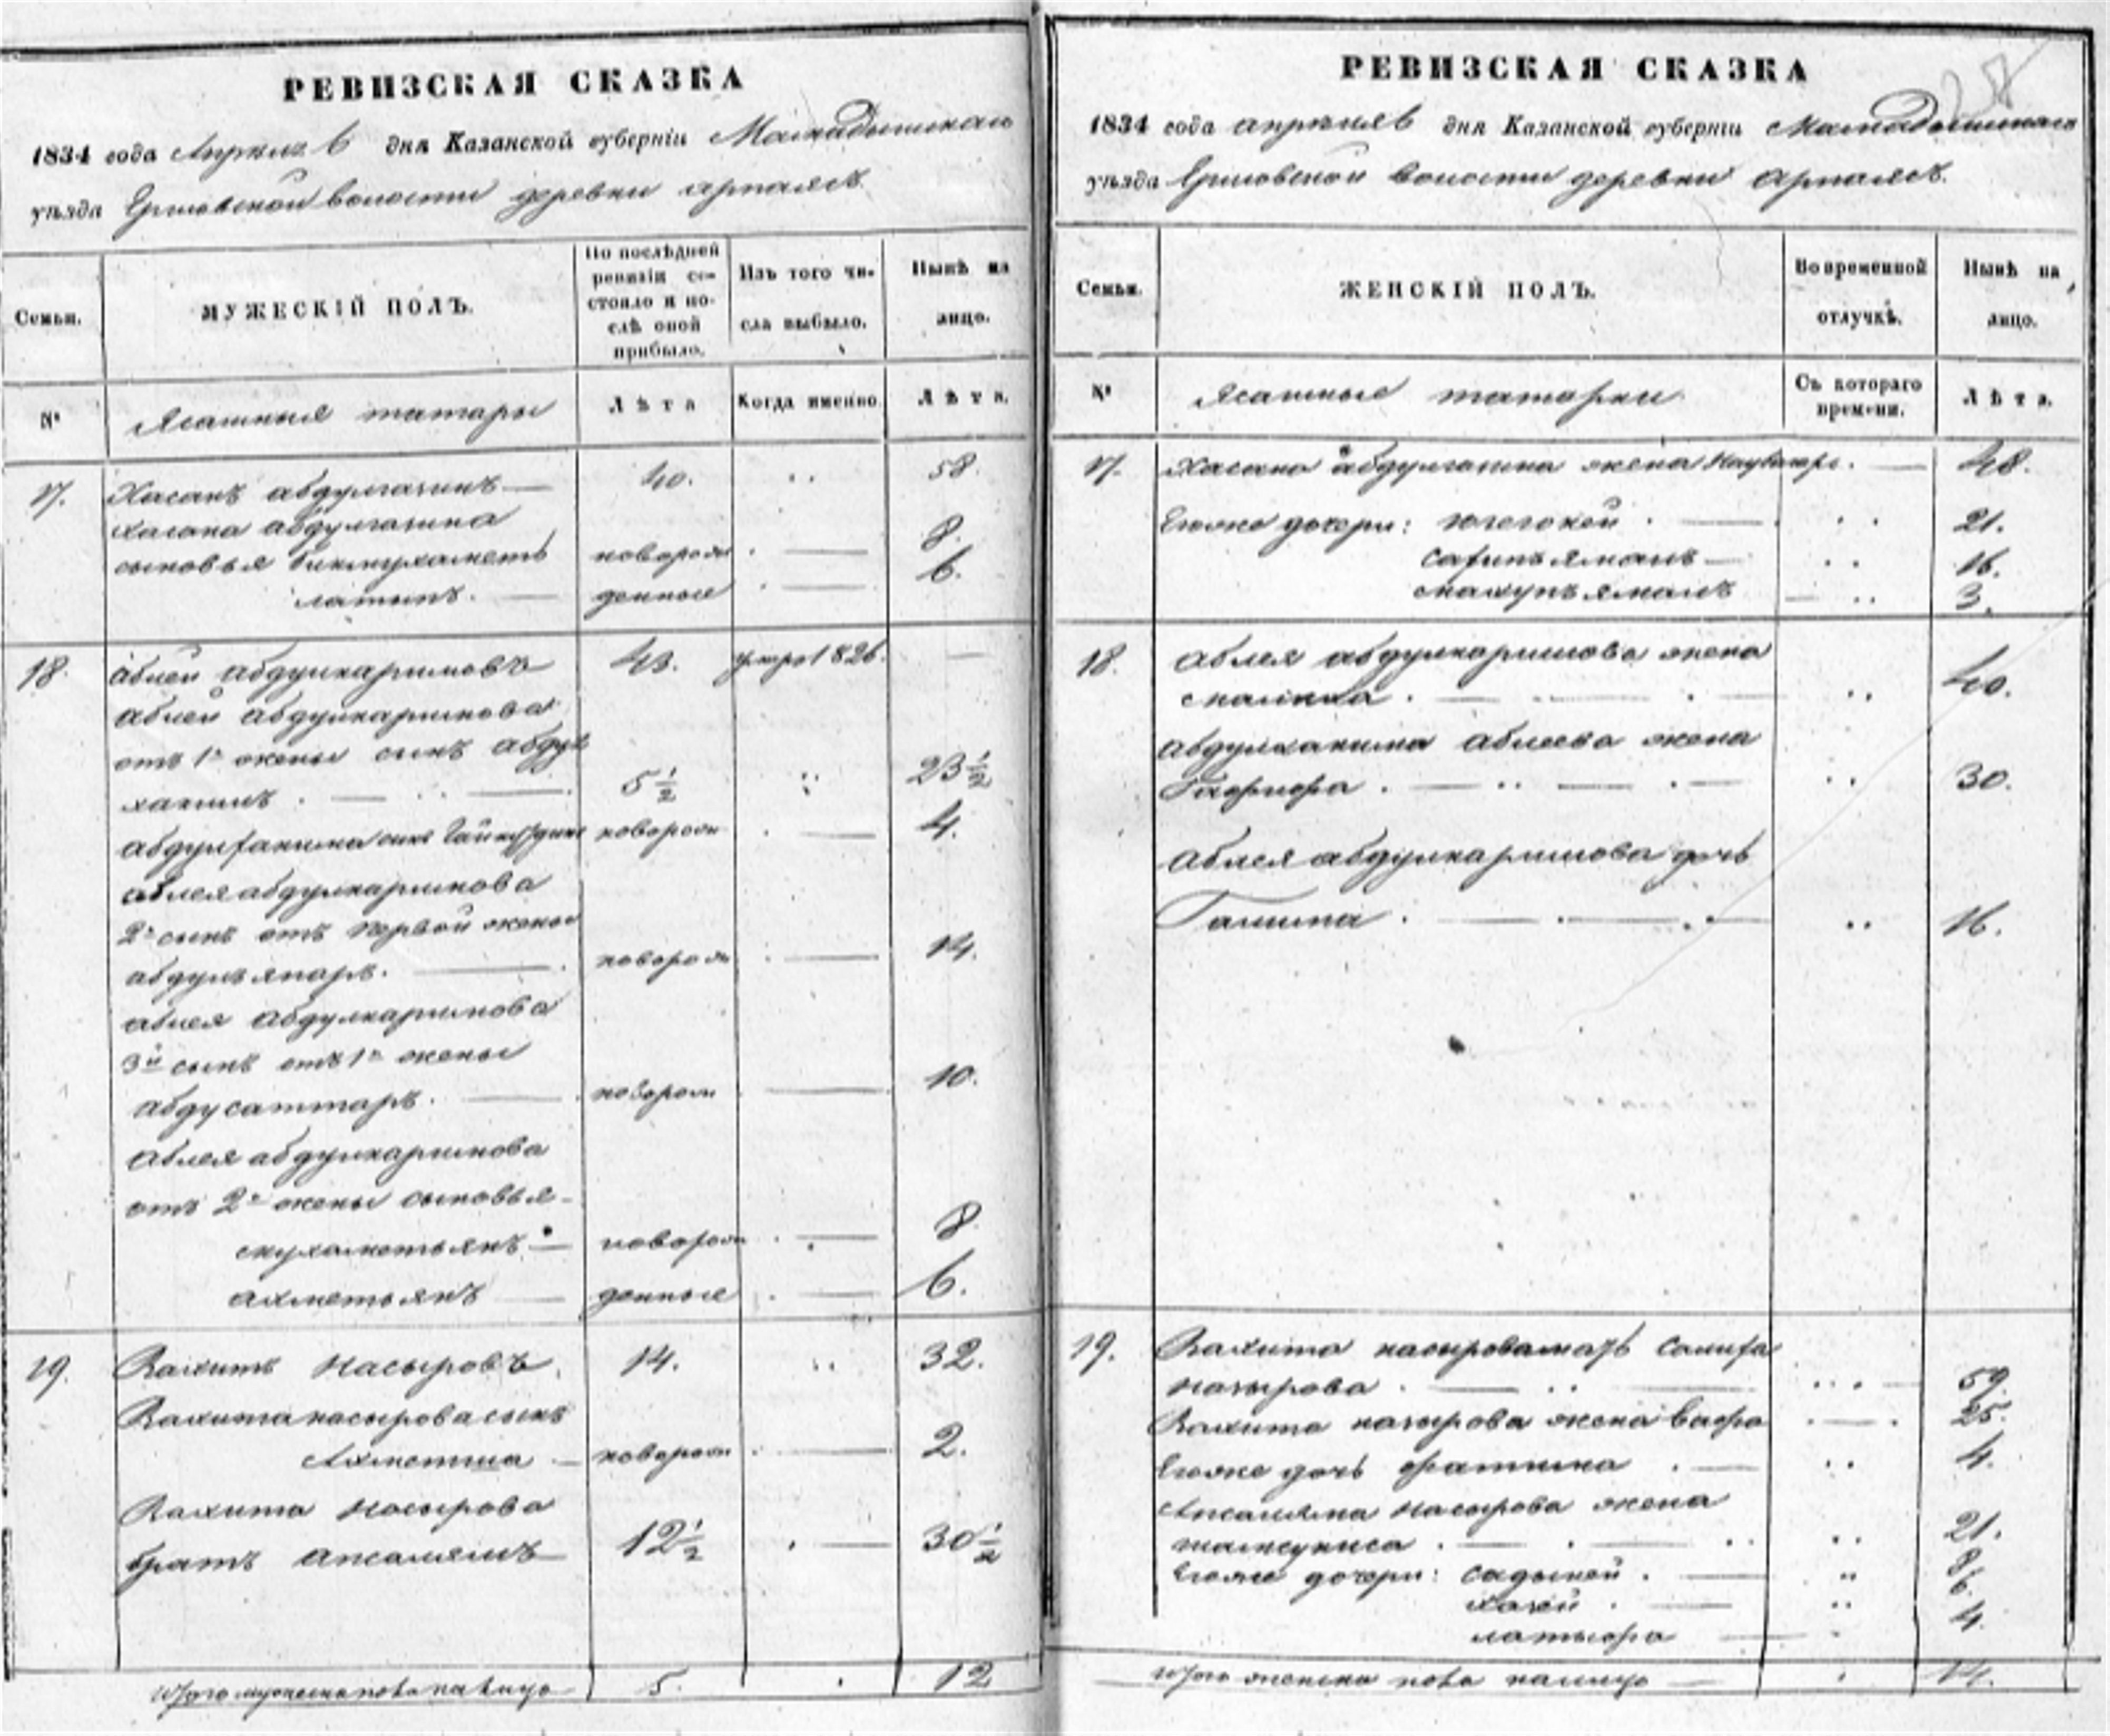 РЕВИЗСКАЯ СКАЗКА
1834 года Апреля 6 дня Казанской губерніи Мамадышскаго
уѣзда волости деревни арпаязъ
Семьи.
МУЖЕСКІЙ ПОЛЪ.
По послѣдней ревизіи состояло и послѣ оной прибыло.
Изъ того числа выбыло.
Нынѣ на лицо.
№
Ясашныя татары
Лѣта
Когда именно
Лѣта.
17. Хасанъ абдулгазинъ 40. 58.
хасана абдулгазина
сыновья бикмухаметь новорож 8.
латыпъ. денные 6.
18. аблей абдулкаримовъ 43. умре 1826.
аблей абдулкаримова
отъ 1й жены сынъ абдул
хакимъ 5 1/2 23 1/2
абдулхакима сынъ новорож 4.
аблея абдулкаримова
2й сынъ отъ первой жены
абдулъянаръ. новорож 14.
аблея абдулкаримова
3й сынъ отъ 1й жены
абдусаттаръ. новорож 10.
аблея абдулкаримова
отъ 2й жены сыновья
мухаметьянъ новорож 8
ахметьянъ денные 6.
19. Вахитъ насыровъ 14. 32.
Вахита насырова сынъ
Ахметша новорож 2.
Вахита насырова
братъ апсалямъ 12 1/2 30 1/2
Итого мужеска пола на лицо 5. 12
РЕВИЗСКАЯ СКАЗКА
1834 года апреля 6 дня Казанской губерніи Мамадышскаго
уѣзда волости деревни арпаязъ.
Семьи.
ЖЕНСКІЙ ПОЛЪ.
Во временной отлучкѣ.
Нынѣ на лицо.
№
Ясашные татарки
Съ котораго времени.
Лѣта.
17. Хасана абдулгазина жена 48.
Егоже дочери: 21.
сафиъямалъ 16.
3.
18. аблея абдулкаримова жена
малика 40.
абдулхакима аблеева жена
30.
аблея абдулкаримова дочь
Галима 16.
19. Вахита насырова мать
насырова 59.
Вахита насырова жена 25.
Егоже дочь фатима 4.
Апсаляма насырова жена
21.
Егоже дочери: 8
6.
4.
Итого женска пола налицо 14.
28